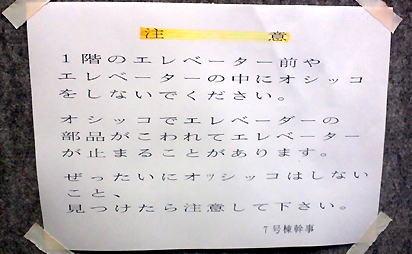 注 意
1階のエレベーター前や
エレベーターの中にオシッコ
をしないでください。
オシッコでエレベーダーの
部品がこわれてエレベーター
が止まることがあります。
ぜったいにオッシッコはしない
こと、
見つけたら注意して下さい。
7号棟幹事